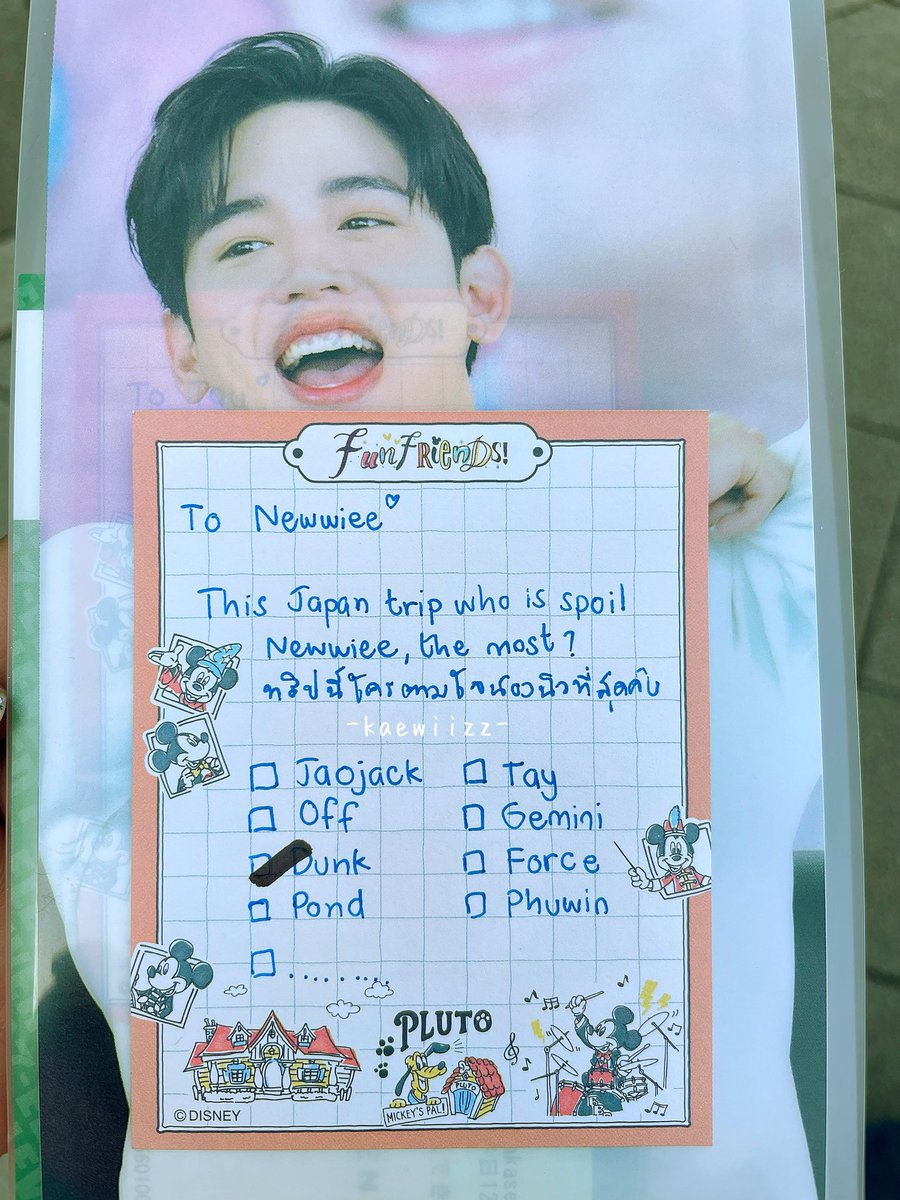 FunFRiENDS!
To Newwiee
This Japan trip who is spoil
Newwiee, the most?
ทริปนี้ใครตามใจน้องนิวที่สุดคับ
-kaewiizz-
Jaojack Tay
Off Gemini
Dunk Force
Pond Phuwin
.......
PLUTO
PLUTO
MICKEY'S PAL!
©DISNEY